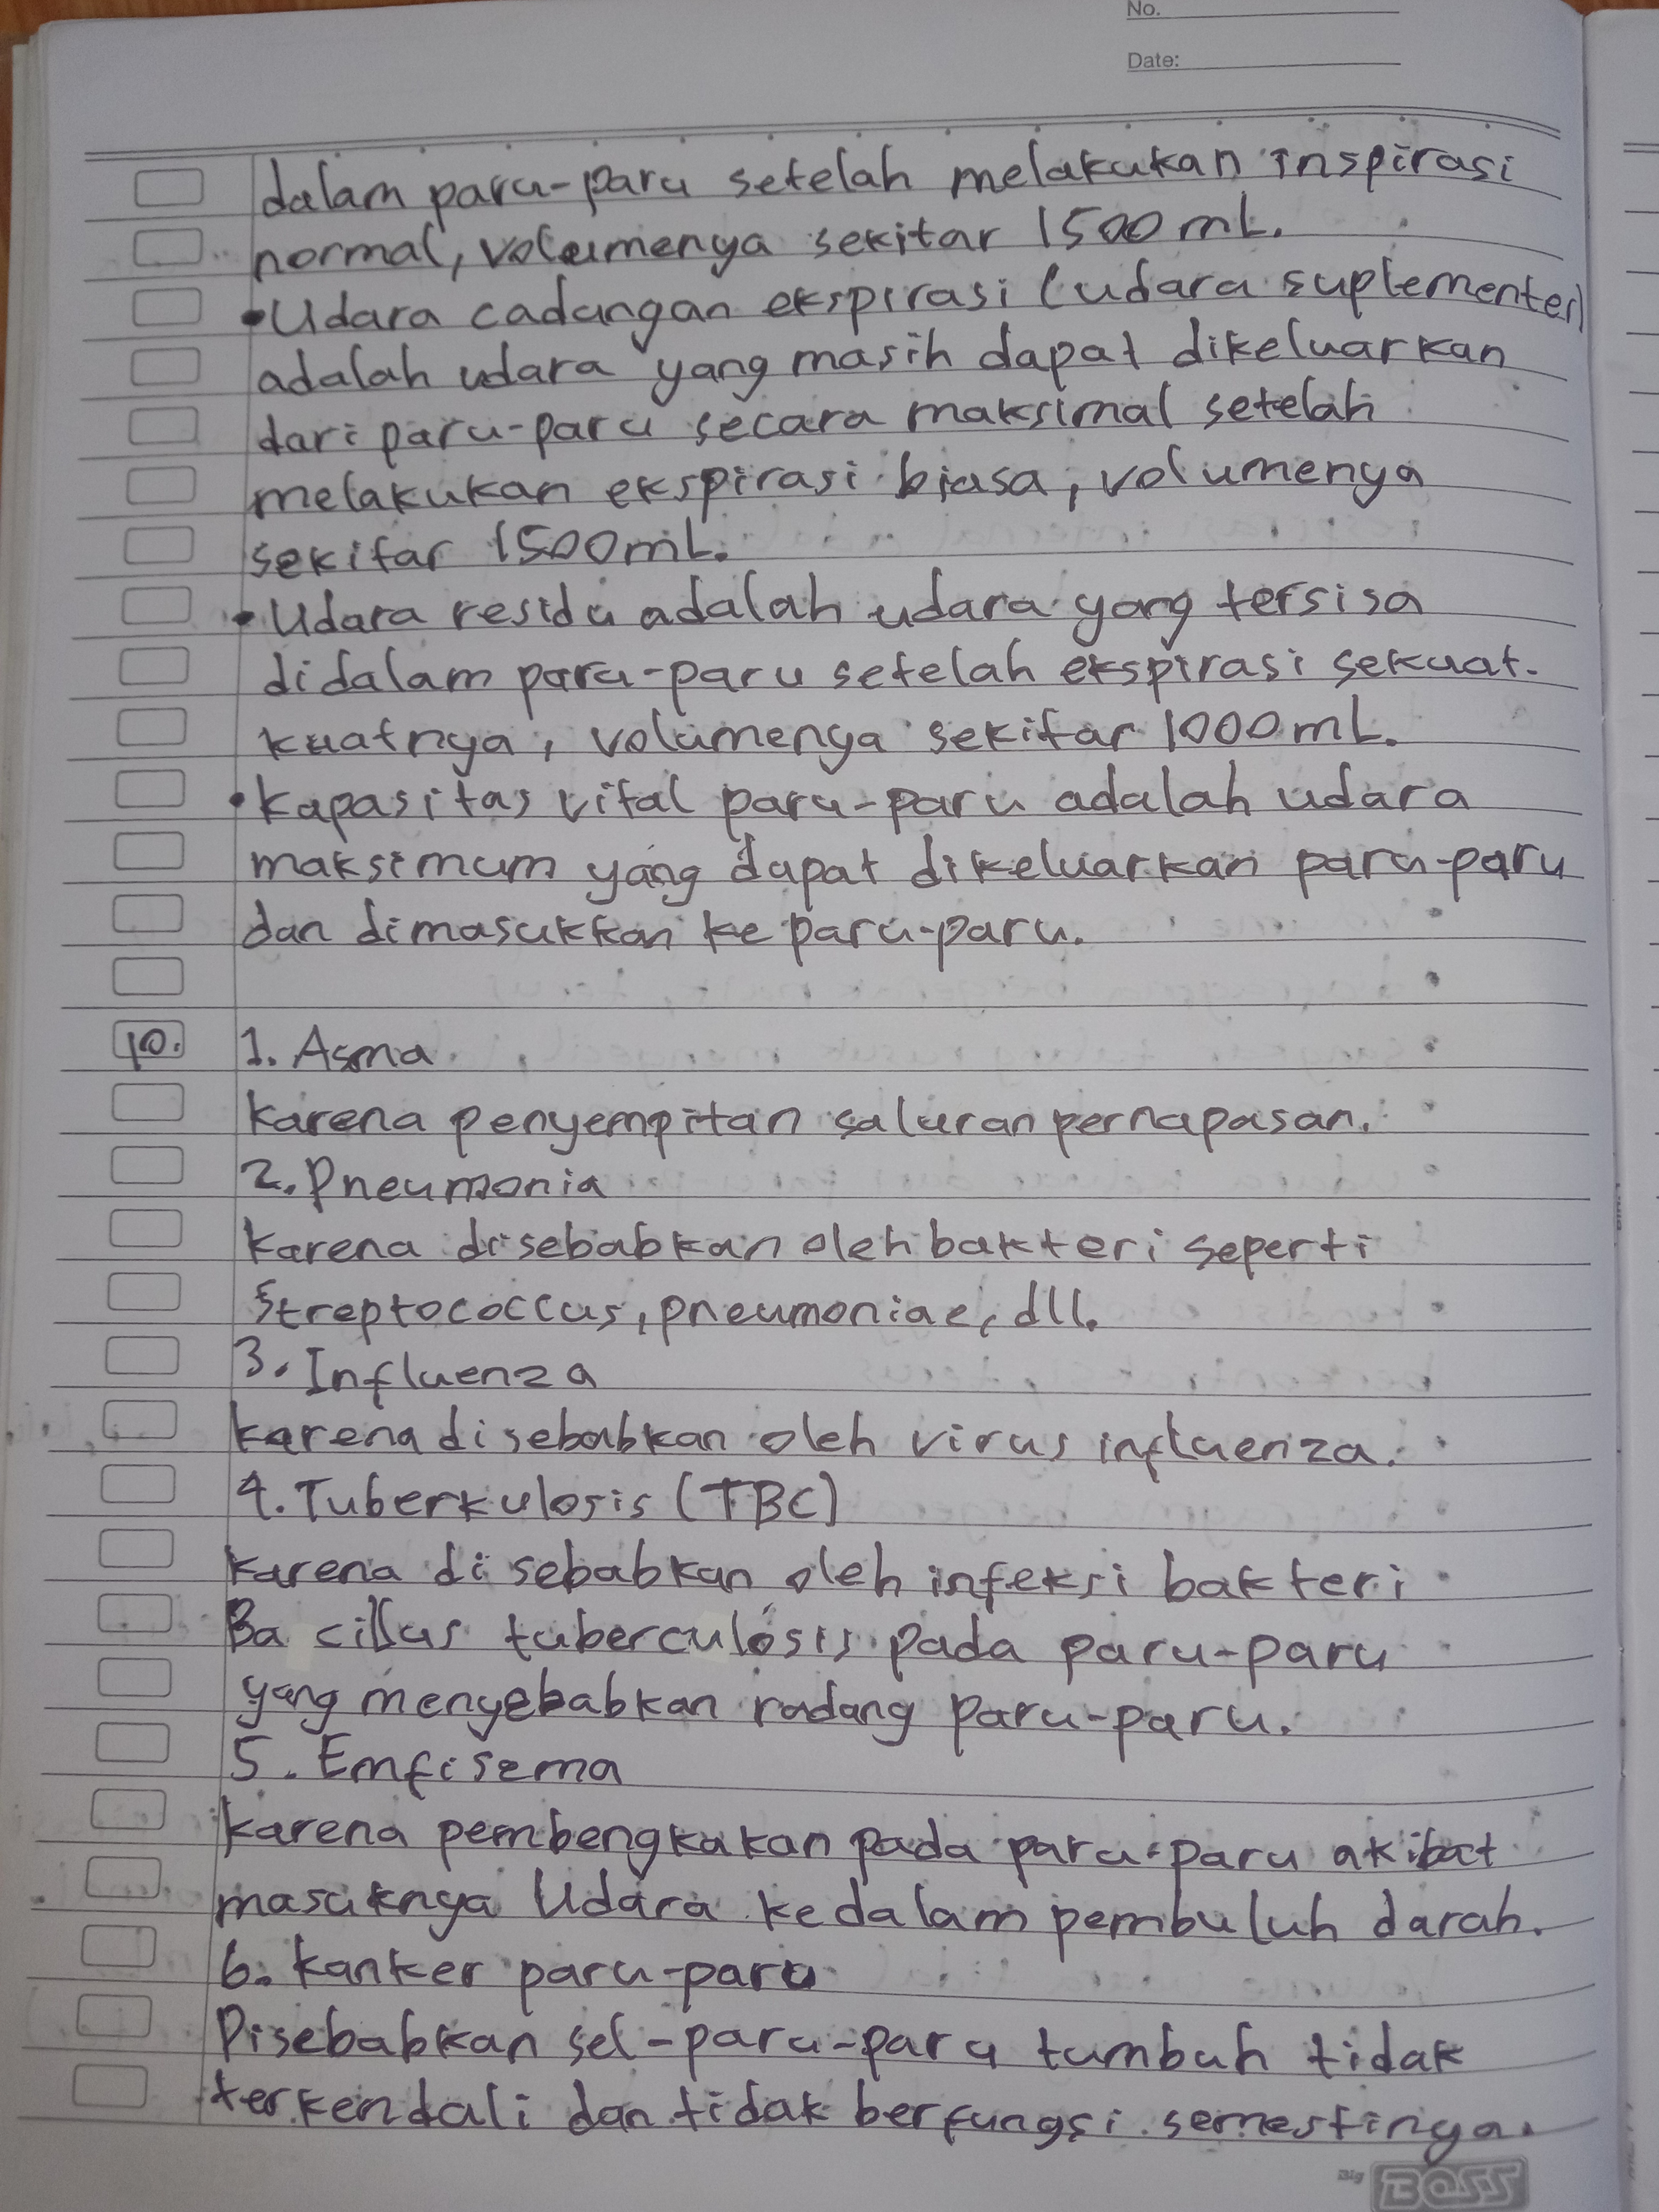 No.
Date:
dalam paru-paru setelah melakukan inspirasi
normal, volumenya sekitar 1500 mL.
• Udara cadangan ekspirasi (udara suplementer)
adalah udara yang masih dapat dikeluarkan
dari paru-paru secara maksimal setelah
melakukan ekspirasi biasa, volumenya
sekitar 1500 mL.
• Udara residu adalah udara yang tersisa
didalam paru-paru setelah ekspirasi sekuat-
kuatnya, volumenya sekitar 1000 mL.
• Kapasitas vital paru-paru adalah udara
maksimum yang dapat dikeluarkan paru-paru
dan dimasukkan ke paru-paru.
10. 1. Asma
Karena penyempitan saluran pernapasan.
2. Pneumonia
Karena disebabkan oleh bakteri seperti
Streptococcus, pneumoniae, dll.
3. Influenza
Karena disebabkan oleh virus influenza.
4. Tuberkulosis (TBC)
Karena disebabkan oleh infeksi bakteri
Bacillus tuberculosis pada paru-paru
yang menyebabkan radang paru-paru.
5. Emfisema
Karena pembengkakan pada paru-paru akibat
masuknya Udara kedalam pembuluh darah.
6. Kanker paru-paru
Disebabkan sel-paru-paru tumbuh tidak
terkendali dan tidak berfungsi semestinya.
Big BOSS